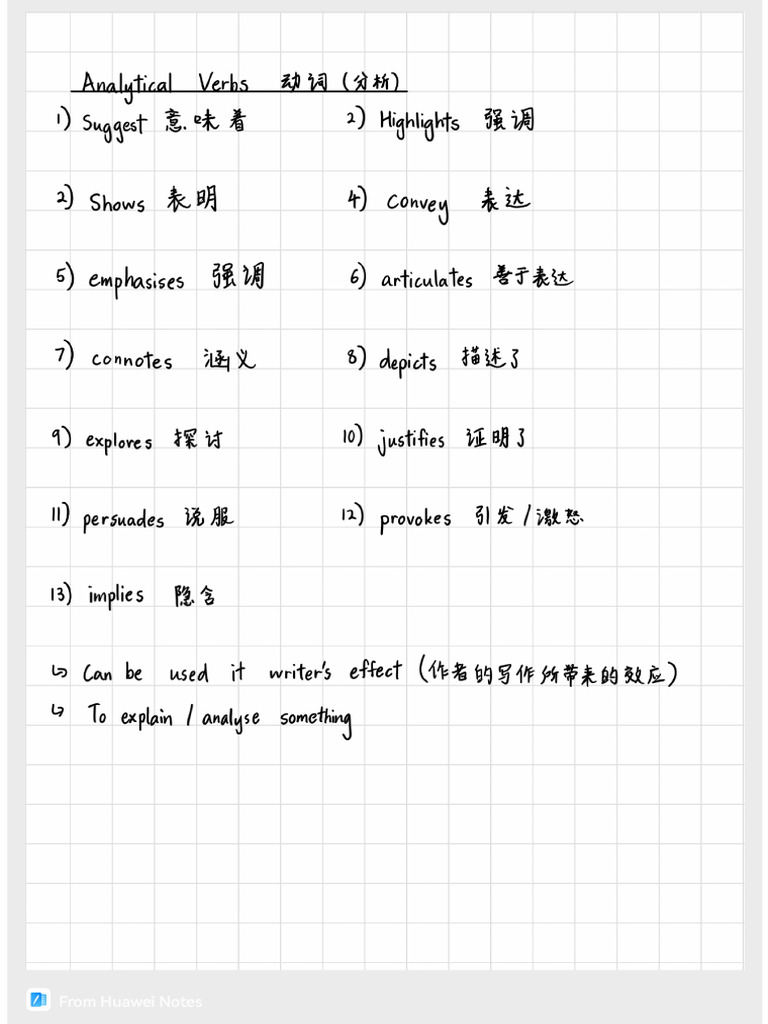 Analytical Verbs 动词 (分析)
1) Suggest 意味着 2) Highlights 强调
2) Shows 表明 4) Convey 表达
5) emphasises 强调 6) articulates 善于表达
7) connotes 涵义 8) depicts 描述了
9) explores 探讨 10) justifies 证明了
11) persuades 说服 12) provokes 引发/激怒
13) implies 隐含
↳ Can be used it writer's effect (作者的写作所带来的效应)
↳ To explain / analyse something
From Huawei Notes